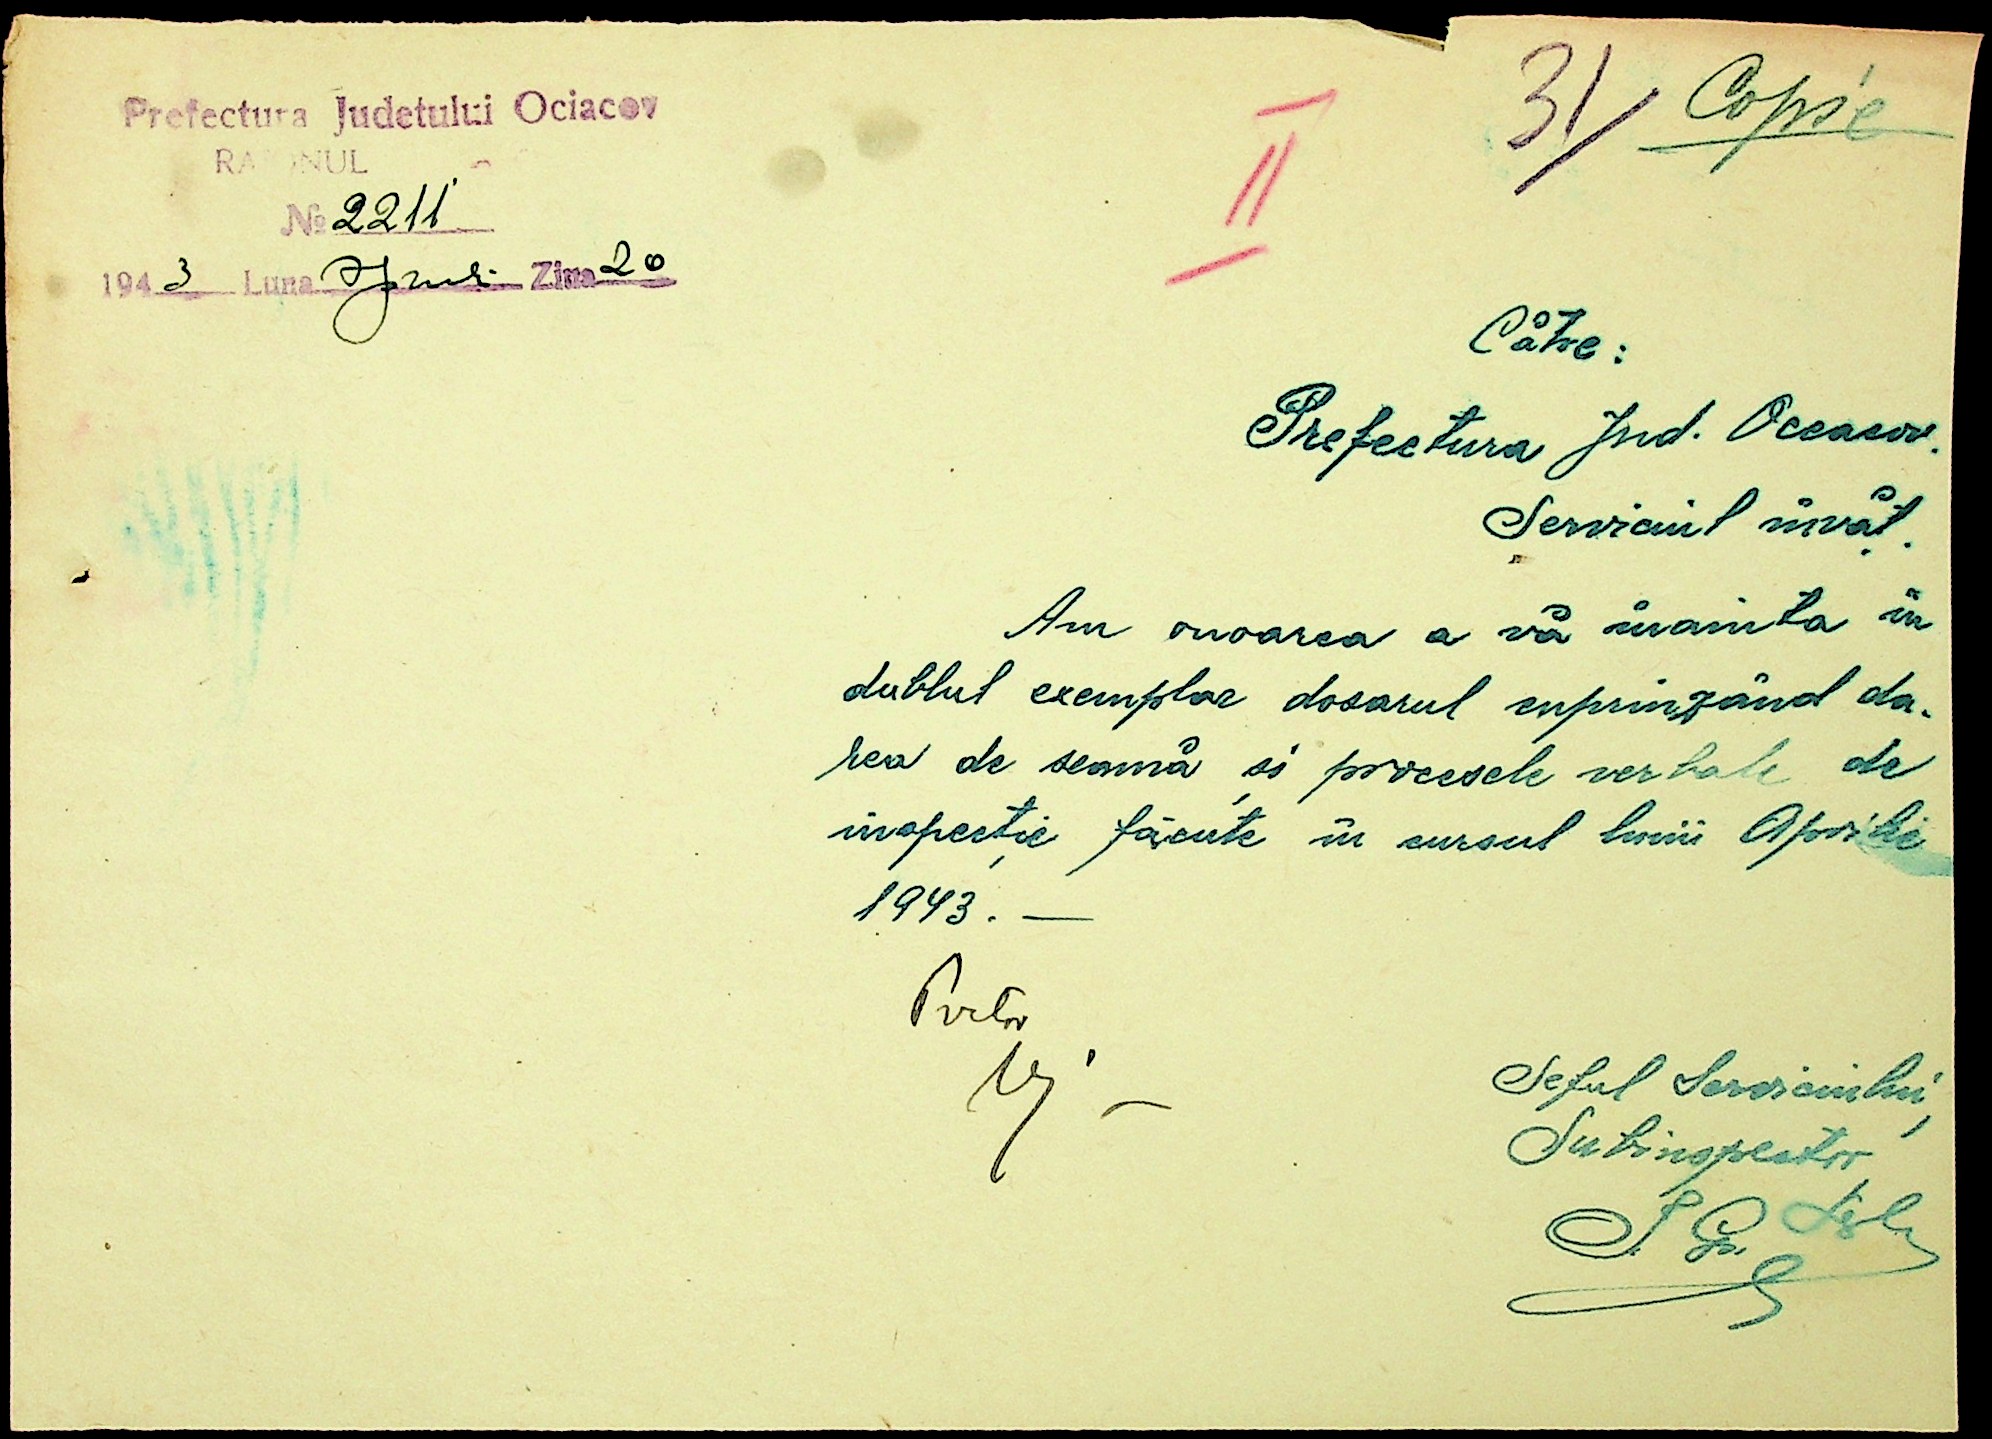 Prefectura Judetului Ociacov
No 2211
1943 Luna Ziua 20
31/ Copie
II
Către:
Prefectura Jud. Oceacov.
Serviciul învăț.
Am onoarea a vă înainta în
dublul exemplar dosarul cuprinzând da-
rea de seamă și procesele verbale de
inspecție făcute în cursul lunii Aprilie
1943. —
Pretor
Șeful Serviciului,
Subinspector